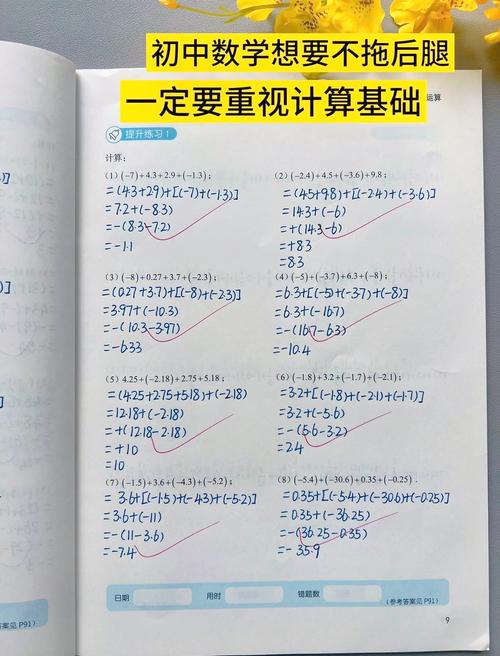 初中数学想要不拖后腿
一定要重视计算基础
运算
提升练习1
计算：
(1) (-7)+4.3+2.9+(-1.3)；
=(4.3+2.9)+[(-7)+(-1.3)]
=7.2+(-8.3)
=-(8.3-7.2)
=-1.1
(2) (-2.4)+4.5+(-3.6)+9.8；
=(4.5+9.8)+[(-2.4)+(-3.6)]
=14.3+(-6)
=+(14.3-6)
=+8.3
=8.3
(3) (-8)+0.27+3.7+(-2.3)；
=(0.27+3.7)+[(-8)+(-2.3)]
=3.97+(-10.3)
=-(10.3-3.97)
=-6.33
(4) (-5)+(-3.7)+6.3+(-8)；
=6.3+[(-5)+(-3.7)+(-8)]
=6.3+(-16.7)
=-(16.7-6.3)
=-10.4
(5) 4.25+(-2.18)+2.75+5.18；
=(4.25+2.75+5.18)+(-2.18)
=12.18+(-2.18)
=+(12.18-2.18)
=+10
=10
(6) (-1.8)+3.2+(-1.7)+(-2.1)；
=3.2+[(-1.8)+(-2.1)+(-1.7)]
=3.2+(-5.6)
=-(5.6-3.2)
=2.4
(7) (-1.5)+3.6+(-4.3)+(-5.2)；
=3.6+[(-1.5)+(-4.3)+(-5.2)]
=3.6+(-11)
=-(11-3.6)
=-7.4
(8) (-5.4)+(-30.6)+0.35+(-0.25)．
=0.35+[(-5.4)+(-30.6)+(-0.25)]
=0.35+(-36.25)
=-(36.25-0.35)
=-35.9
日期
用时
错题数
(参考答案见 P91)
9
答案见 P91)